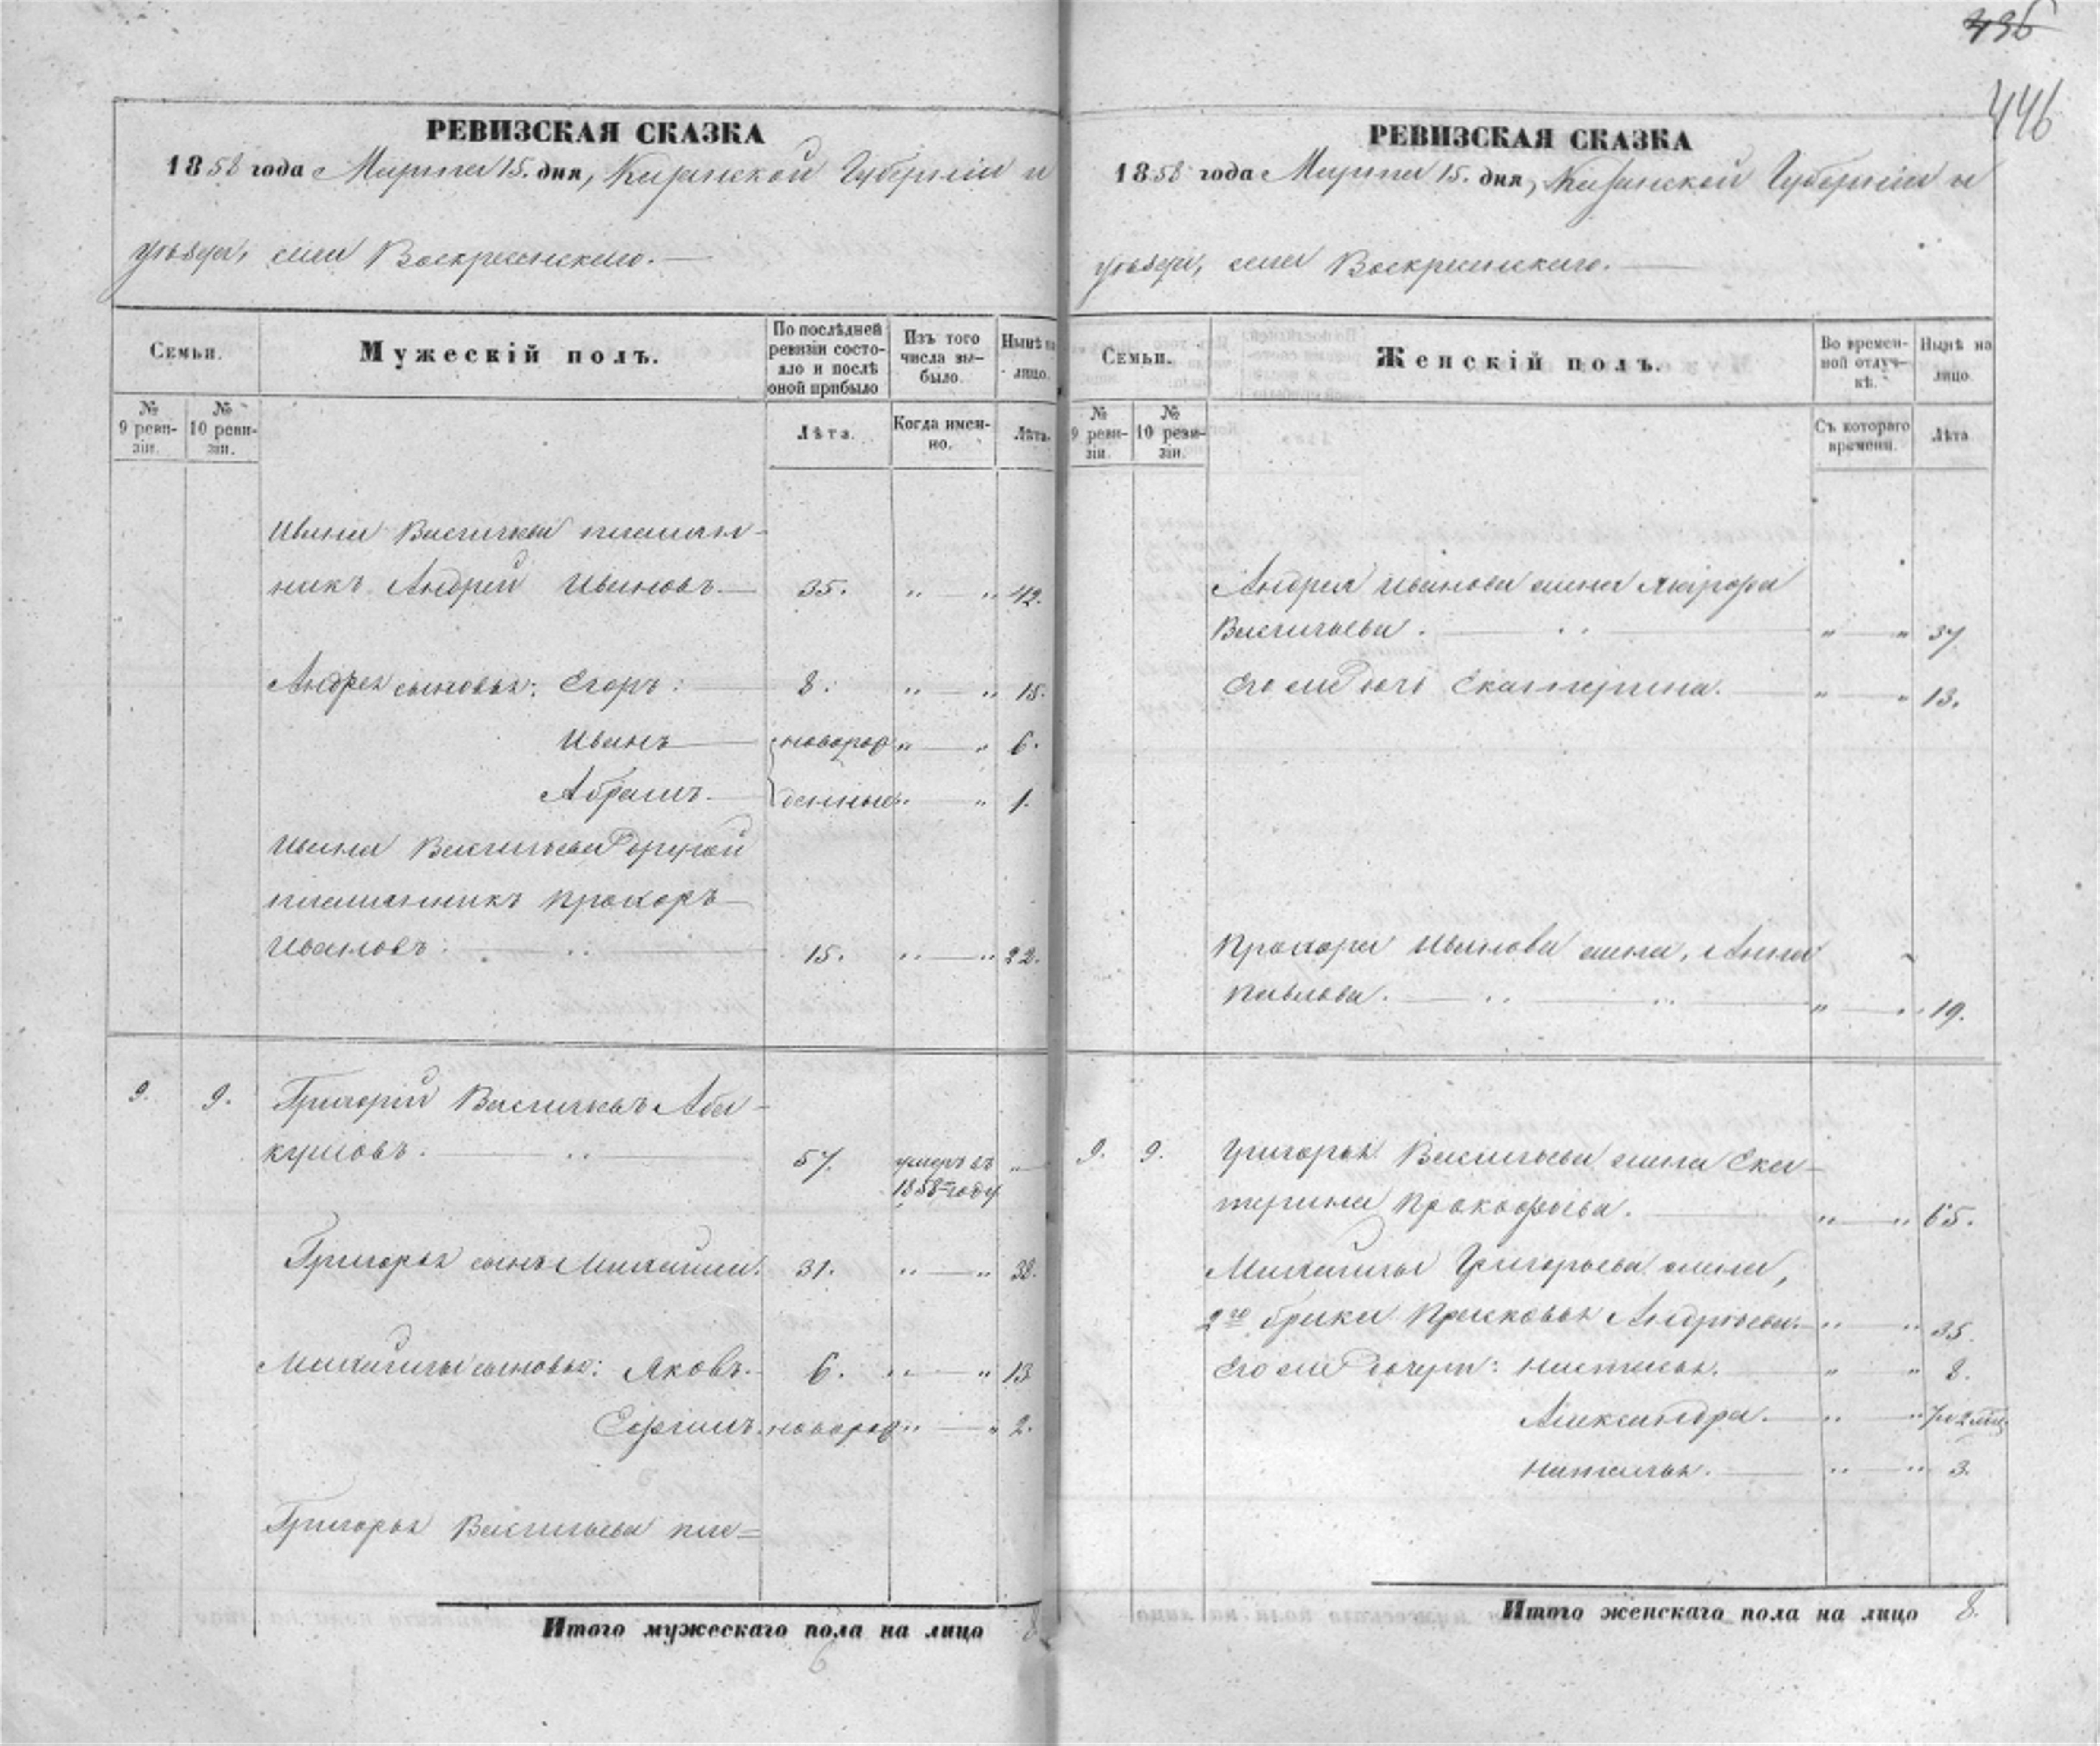 436
446
РЕВИЗСКАЯ СКАЗКА
1858 года Марта 15. дня, Казанской Губерніи и
уѣзда, села Воскресенскаго.
Семьи.
Мужескій полъ.
По послѣдней ревизіи состояло и послѣ оной прибыло
Изъ того числа выбыло.
Нынѣ на лицо.
№ 9 ревизіи.
№ 10 ревизіи.
Лѣта.
Когда именно.
Лѣта.
Ивана Васильева племян-
никъ Андрей Ивановъ 35. " " 42.
Андрея сыновья: Егоръ: 8. " " 15.
Иванъ новорож " " 6.
Абрамъ денные " " 1.
Ивана Васильева другой
племянникъ Прохоръ
Ивановъ: 15. " " 22.
9. 9. Григорій Васильевъ Аба-
кумовъ. 57. умеръ въ "
1858 году
Григорья сынъ Михаила. 31. " " 38.
Михайлы сыновья: Яковъ. 6. " " 13
новорож " " 2.
Григорья Васильева пле=
Итого мужескаго пола на лицо 8
6
РЕВИЗСКАЯ СКАЗКА
1858 года Марта 15. дня, Казанской Губерніи и
уѣзда, села Воскресенскаго.
Семьи.
Женскій полъ.
Во временной отлучкѣ.
Нынѣ на лицо.
№ 9 ревизіи.
№ 10 ревизіи.
Съ котораго времени.
Лѣта
Андрея Иванова жена
Васильева. " " 37
Его же дочь Екатерина. " " 13.
Прохора Иванова жена, Анна
Павлова. " " 19.
9. 9. Григорья Васильева жена Ека-
терина Прокофьева. " " 65.
Михайлы Григорьева жена,
2го брака Прасковья Андреева " " 35.
Его же дочери: Настасья. " " 8.
Александра. " "
Наталья. " " 3.
Итого женскаго пола на лицо 8.